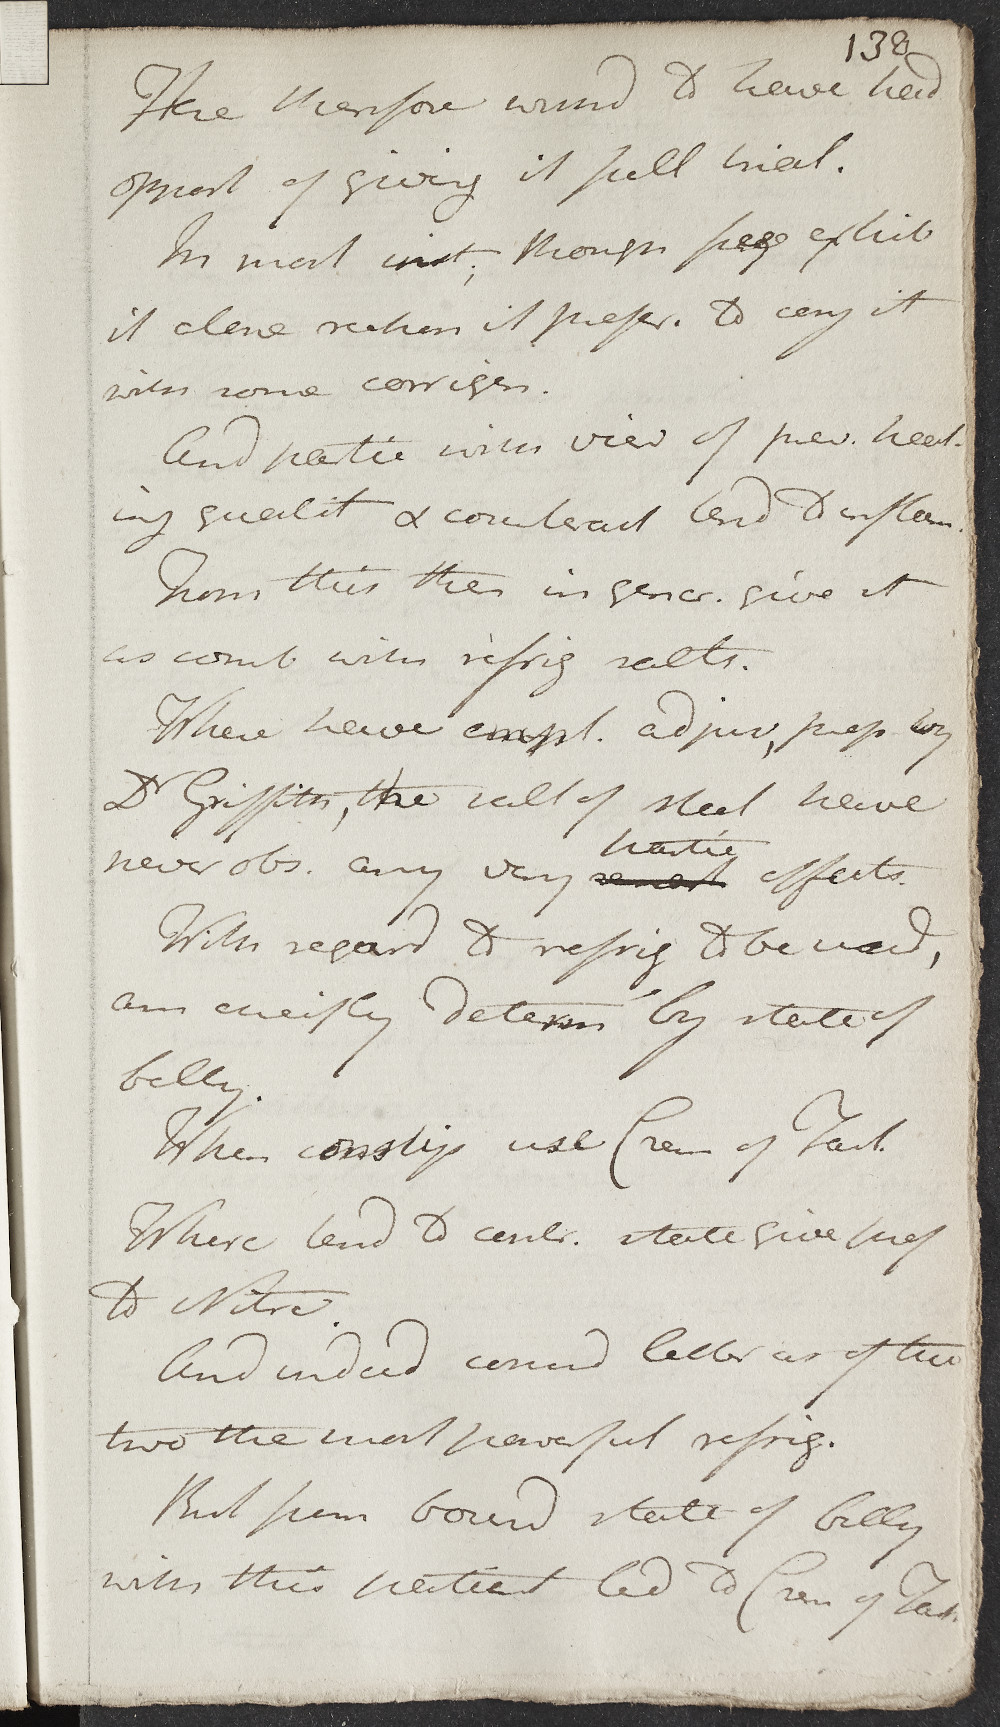 138
Here therefore wind to have had
opport of giving it full trial.
In most inst; though freq exhib
it alone rather it prefer. to conj it
with some corrigen.
And partic with view of prev. heat-
ing qualit & counteract tend to inflam.
From this then in gener. give it
as comb with refrig salts.
Where have empl. adjuv, prep by
Dr Griffith, the salt of steel have
never obs. any very partic effects.
With regard to refrig to be used,
am cheifly determ by state of
belly.
When constip use Crem of Tart.
Where tend to contr. state give pref
to Nitre.
And indeed consid latter as of the
two the most powerful refrig.
But from bound state of belly
with this patient led to Crem of Tart.